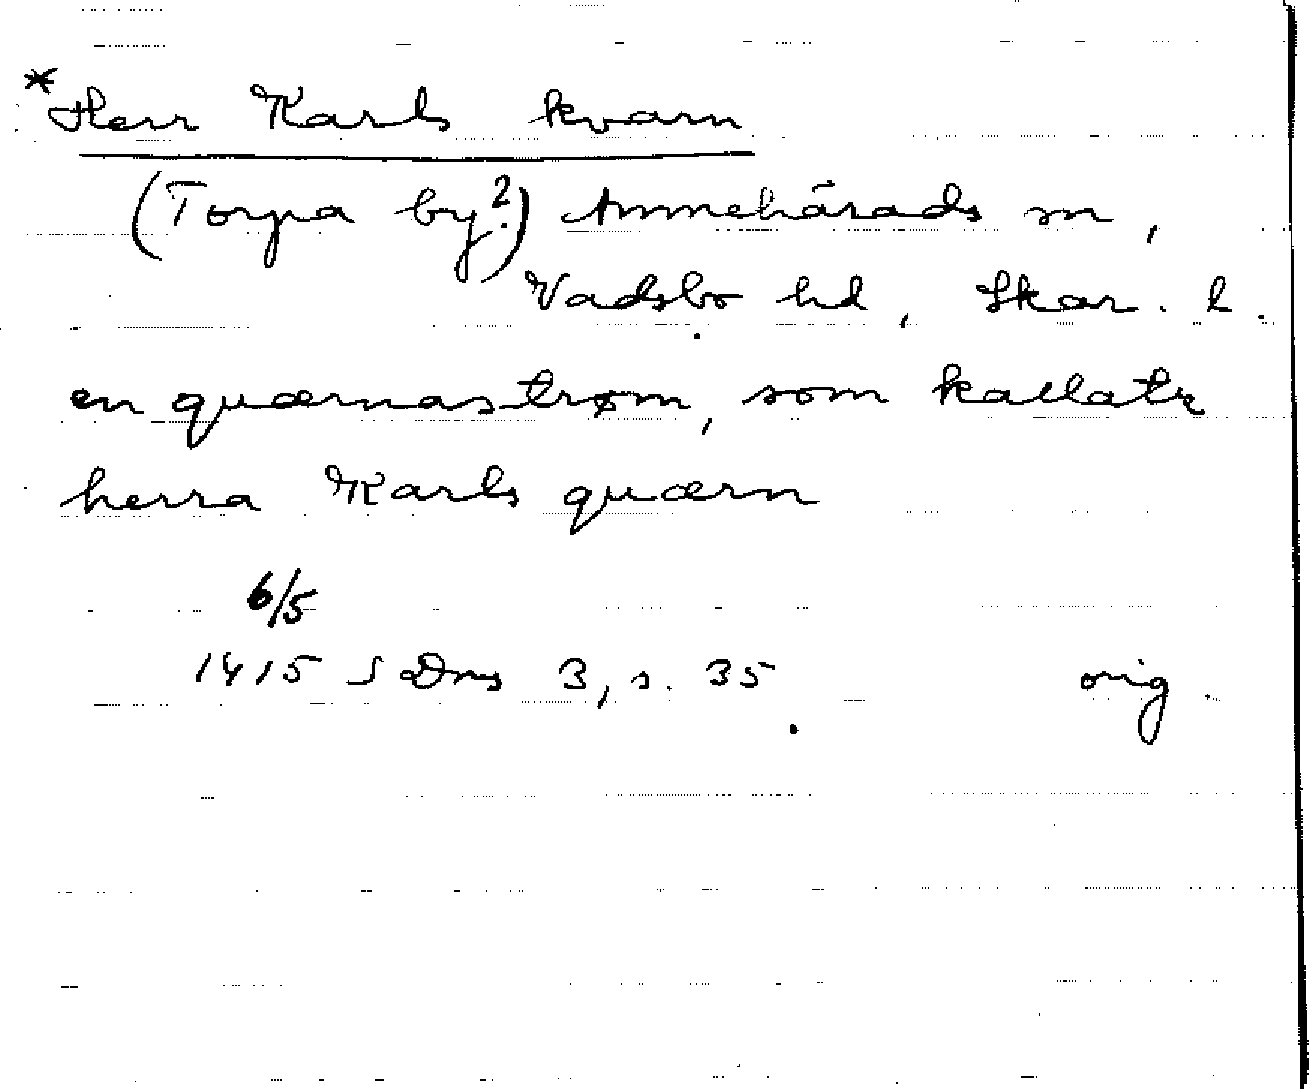 *Herr Karls kvarn
(Torpa by?) Amnehärads sn,
Vadsbo hd, Skar. l.
en quærnastrøm, som kallatz
herra Karls quærn
6/5
1415 SDns 3, s. 35. orig.